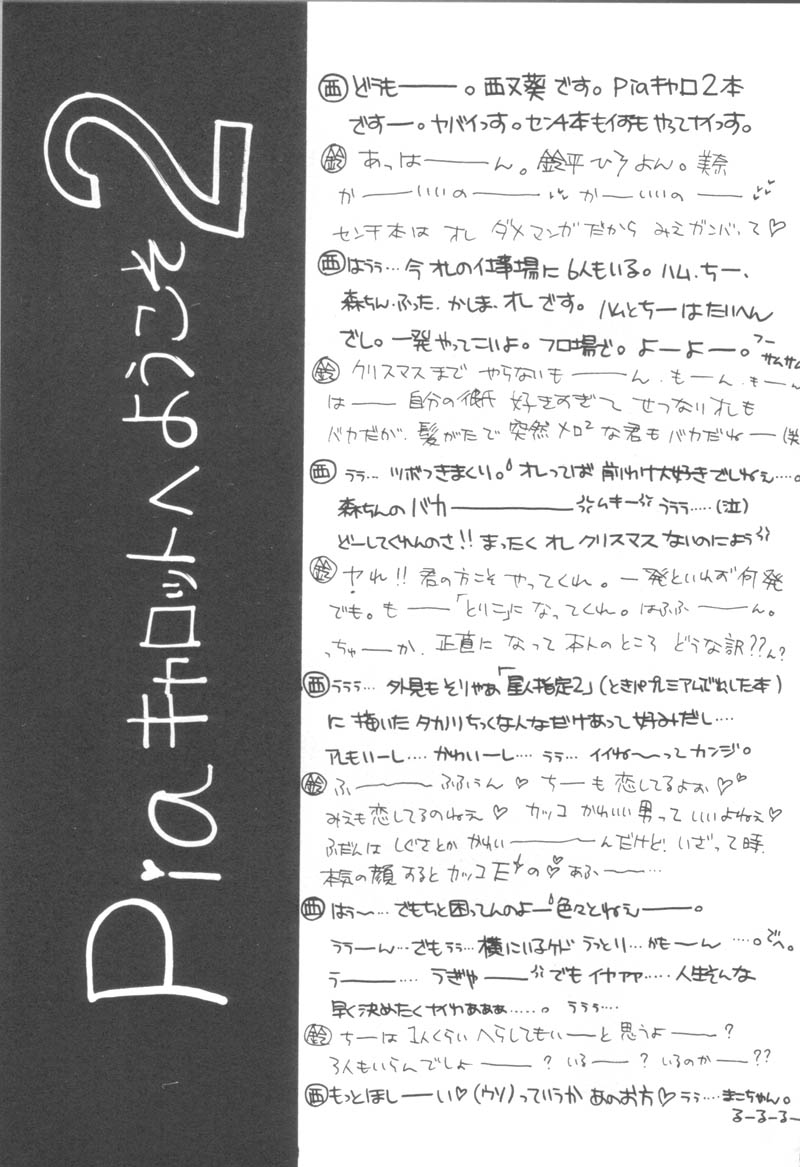 Piaキャロットへようこそ2
西 どうも――。西又葵です。Piaキャロ2本
ですー。ヤバイっす。センチ本もイずもやってナイっす。
鈴 あっは―――ん。鈴平ひろよん。美奈
か――いいの―――か―いいの――
センチ本はオレダメマンガだからみえガンバって♡
西 はうぅ…今オレの仕事場に6人もいる。ハム、ちー、
森ちん、ふった、かしま、オレです。ハムとちーはたいへん
ざし。一発やってこいよ。フロ場で。よーよー。フーサムサム
鈴 クリスマスまでやらないも――ん、も―ん、も―ん
は――自分の彼氏好きすぎてせつなりオレも
バカだが、髪がたで突然メロ²な君もバカだねー(笑
西 ううぅ…ツボつきまくり。オレってば前わけ大好きでしねぇ…。
森ちんのバカ――――ムキーうぅぅ……(泣)
どーしてくれんのさ!!まったくオレクリスマスないのによぅ
鈴 ヤれ!!君の方こそやってくれ。一発といわず何発
でも。も――「とりこ」になってくれ。はふふ――ん。
っちゅーか、正直になって本人のところどうな訳??ん?
西 ううぅ…外見もそりゃあ「星人指定2」(ときパプレミアムでだした本)
に描いたタカノリちっくな人なだけあって好みだし…
アレもいーし…かわいーし…うぅ…イイね～ってカンジ。
鈴 ふ―――ふふぅん♡ちーも恋してるよぉ♡
みえも恋してるのねえ♡カッコかわいい男っていいよねえ♡
ふだんはしぐさとかかわい―――んだけど!いざって時、
本気の顔するとカッコEの♡あふ――…
西 はぅ～…でもちと困ってんのよー色々とねぇ――。
うぅーん…でもうぅ…横にいるケドうっとり…かも～ん…。でへ。
う――…うぎゃ――でもイヤァァ……人生そんな
早く決めたくナイわあぁぁ……。うぅぅ…
鈴 ちーは1人くらいへらしてもいーと思うよ――?
3人もいらんでしょ――?いる――?いるのか―??
西 もっとほし――い♡(ウソ)っていうかあのお方♡うぅ…まこちゃん。
るーるーるー